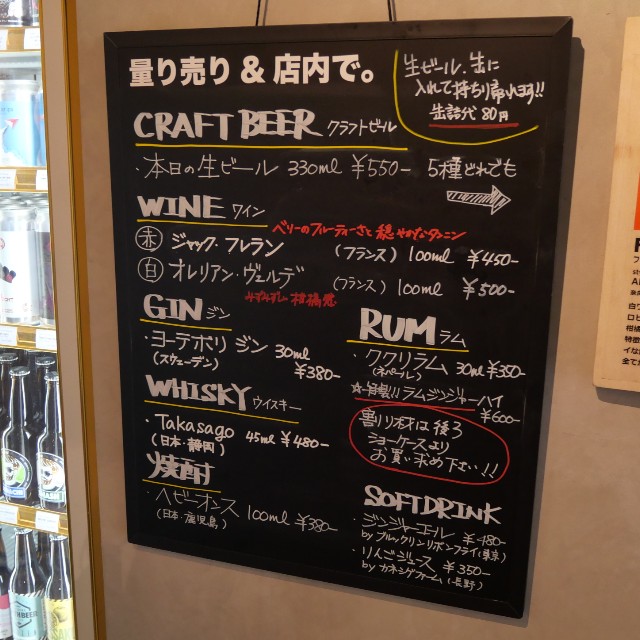 量り売り & 店内で。
生ビール、缶に
入れて持ち帰れます!!
缶詰代 80円
CRAFT BEER クラフトビール
・本日の生ビール 330ml ¥550- 5種どれでも
WINE ワイン
ベリーのフルーティーさと穏やかなタンニン
赤 ジャック・フレラン (フランス) 100ml ¥450-
白 オレリアン・ヴェルデ (フランス) 100ml ¥500-
みずみずしい柑橘感
GIN ジン
・ヨーテボリ ジン 30ml
(スウェーデン) ¥380-
WHISKY ウイスキー
・Takasago 45ml ¥480-
(日本・静岡)
焼酎
・ヘビーオンス 100ml ¥380-
(日本・鹿児島)
RUM ラム
・ククリラム 30ml ¥350-
(ネパール)
☆自製!! ラムジンジャーハイ
¥600-
割り材は後ろ
ショーケースより
お買い求め下さい!!
SOFTDRINK
・ジンジャーエール ¥480-
by ブルックリンリボンフライ(東京)
・りんごジュース ¥350-
by カネシゲファーム(長野)